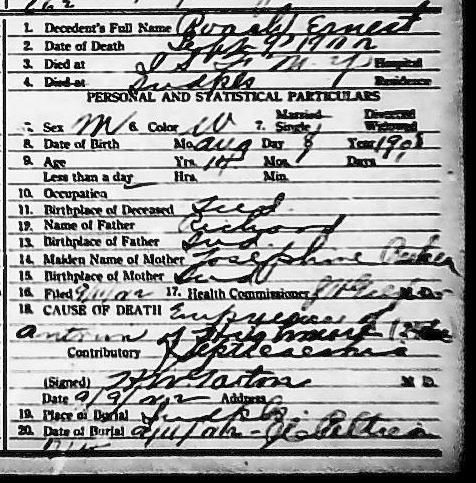 1. Decedent's Full Name Ernest
2. Date of Death Sept 9 1922
3. Died at I S Hospital
4. Died at Indpls Residence
PERSONAL AND STATISTICAL PARTICULARS
5. Sex M 6. Color W 7. Married Single Divorced Widowed
8. Date of Birth Mo. Aug Day 8 Year 1908
9. Age Yrs. 14 Mos. 1 Days
Less than a day Hrs. Min.
10. Occupation
11. Birthplace of Deceased Ind.
12. Name of Father Richard
13. Birthplace of Father Ind.
14. Maiden Name of Mother Josephine
15. Birthplace of Mother Ind
16. Filed 9/11/22 17. Health Commissioner M. D.
18. CAUSE OF DEATH Empyema of
Antrum of Highmore
Contributory Septicaemia
(Signed) M. D.
Date 9/9/22 Address
19. Place of Burial Indpls
20. Date of Burial 9/11/22